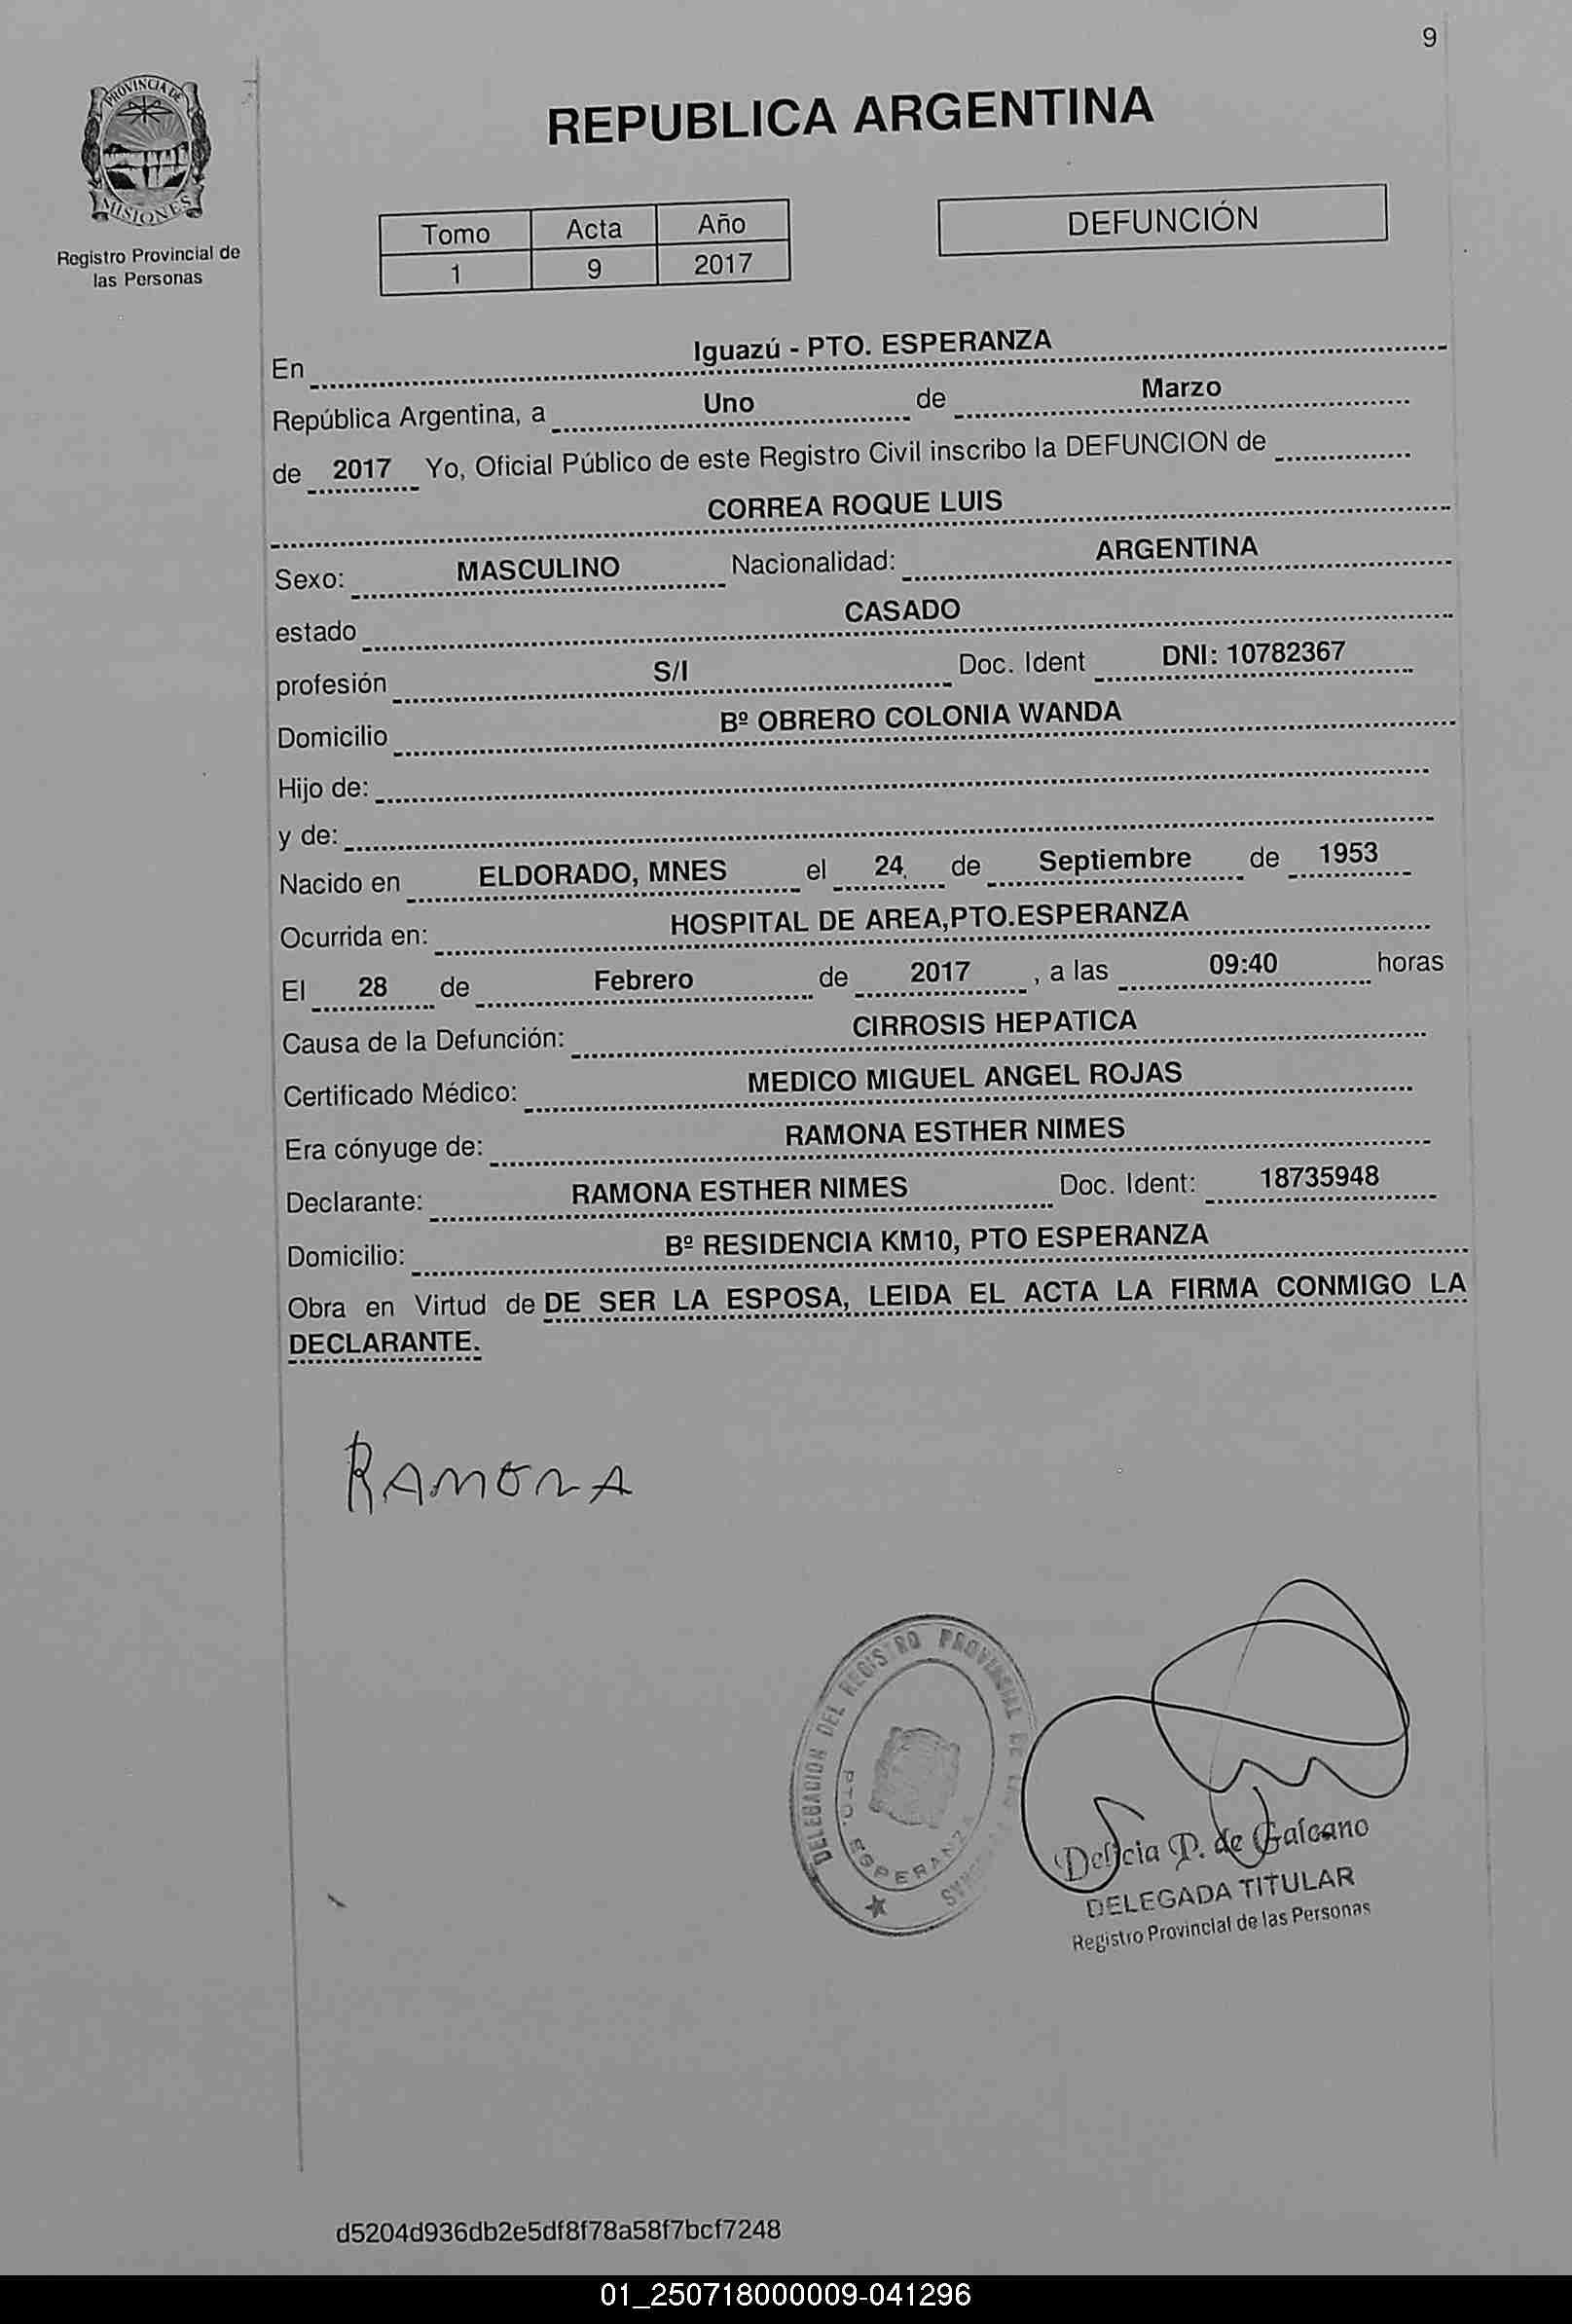 9
PROVINCIA DE
MISIONES
Registro Provincial de
las Personas
REPUBLICA ARGENTINA
Tomo Acta Año
1 9 2017
DEFUNCIÓN
En Iguazú - PTO. ESPERANZA
República Argentina, a Uno de Marzo
de 2017 Yo, Oficial Público de este Registro Civil inscribo la DEFUNCION de
CORREA ROQUE LUIS
Sexo: MASCULINO Nacionalidad: ARGENTINA
estado CASADO
profesión S/I Doc. Ident DNI: 10782367
Domicilio Bº OBRERO COLONIA WANDA
Hijo de:
y de:
Nacido en ELDORADO, MNES el 24 de Septiembre de 1953
Ocurrida en: HOSPITAL DE AREA,PTO.ESPERANZA
El 28 de Febrero de 2017 , a las 09:40 horas
Causa de la Defunción: CIRROSIS HEPATICA
Certificado Médico: MEDICO MIGUEL ANGEL ROJAS
Era cónyuge de: RAMONA ESTHER NIMES
Declarante: RAMONA ESTHER NIMES Doc. Ident: 18735948
Domicilio: Bº RESIDENCIA KM10, PTO ESPERANZA
Obra en Virtud de DE SER LA ESPOSA, LEIDA EL ACTA LA FIRMA CONMIGO LA
DECLARANTE.
RAMONA
DELEGACION DEL REGISTRO PROVINCIAL DE LAS PERSONAS
PTO. ESPERANZA
Delicia P. de Galeano
DELEGADA TITULAR
Registro Provincial de las Personas
d5204d936db2e5df8f78a58f7bcf7248
01_250718000009-041296